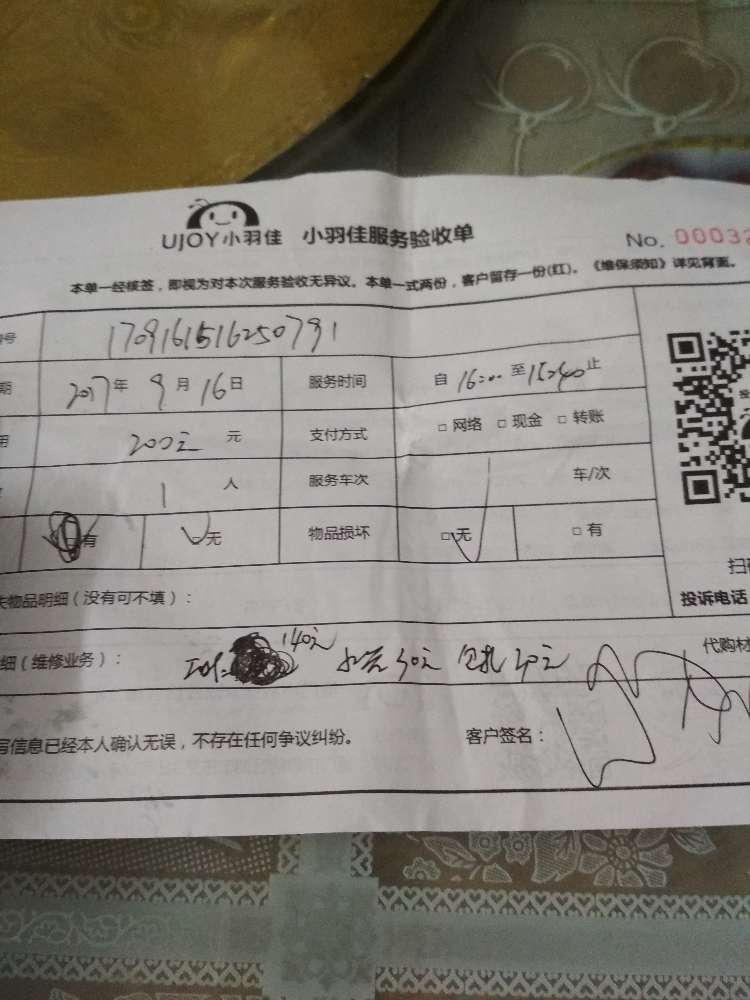 UJOY小羽佳 小羽佳服务验收单 No. 00032
本单一经核签，即视为对本次服务验收无异议。本单一式两份，客户留存一份(红)。《维保须知》详见背面。
号 1709161516250791
期 2017年 9月 16日 服务时间 自 16:00 至 止
用 200元 元 支付方式 □ 网络 □ 现金 □ 转账
1 人 服务车次 1 车/次
□有 □无 物品损坏 □无 □ 有
失物品明细（没有可不填）：
扫
投诉电话
细（维修业务）： 140元 30元 30元
代购材
写信息已经本人确认无误，不存在任何争议纠纷。 客户签名：